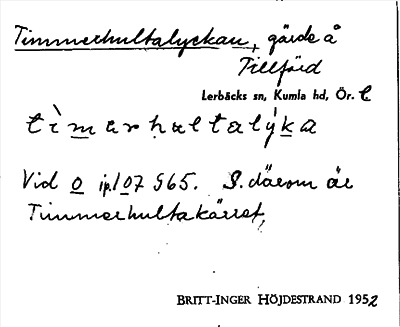 Timmerhultalyckan, gärde å
Tillfärd
Lerbäcks sn, Kumla hd, Ör. L
tìmərhultalýka
Vid o ip. 107 965. S. därom är
Timmerhultakärret,
BRITT-INGER HÖJDESTRAND 1952